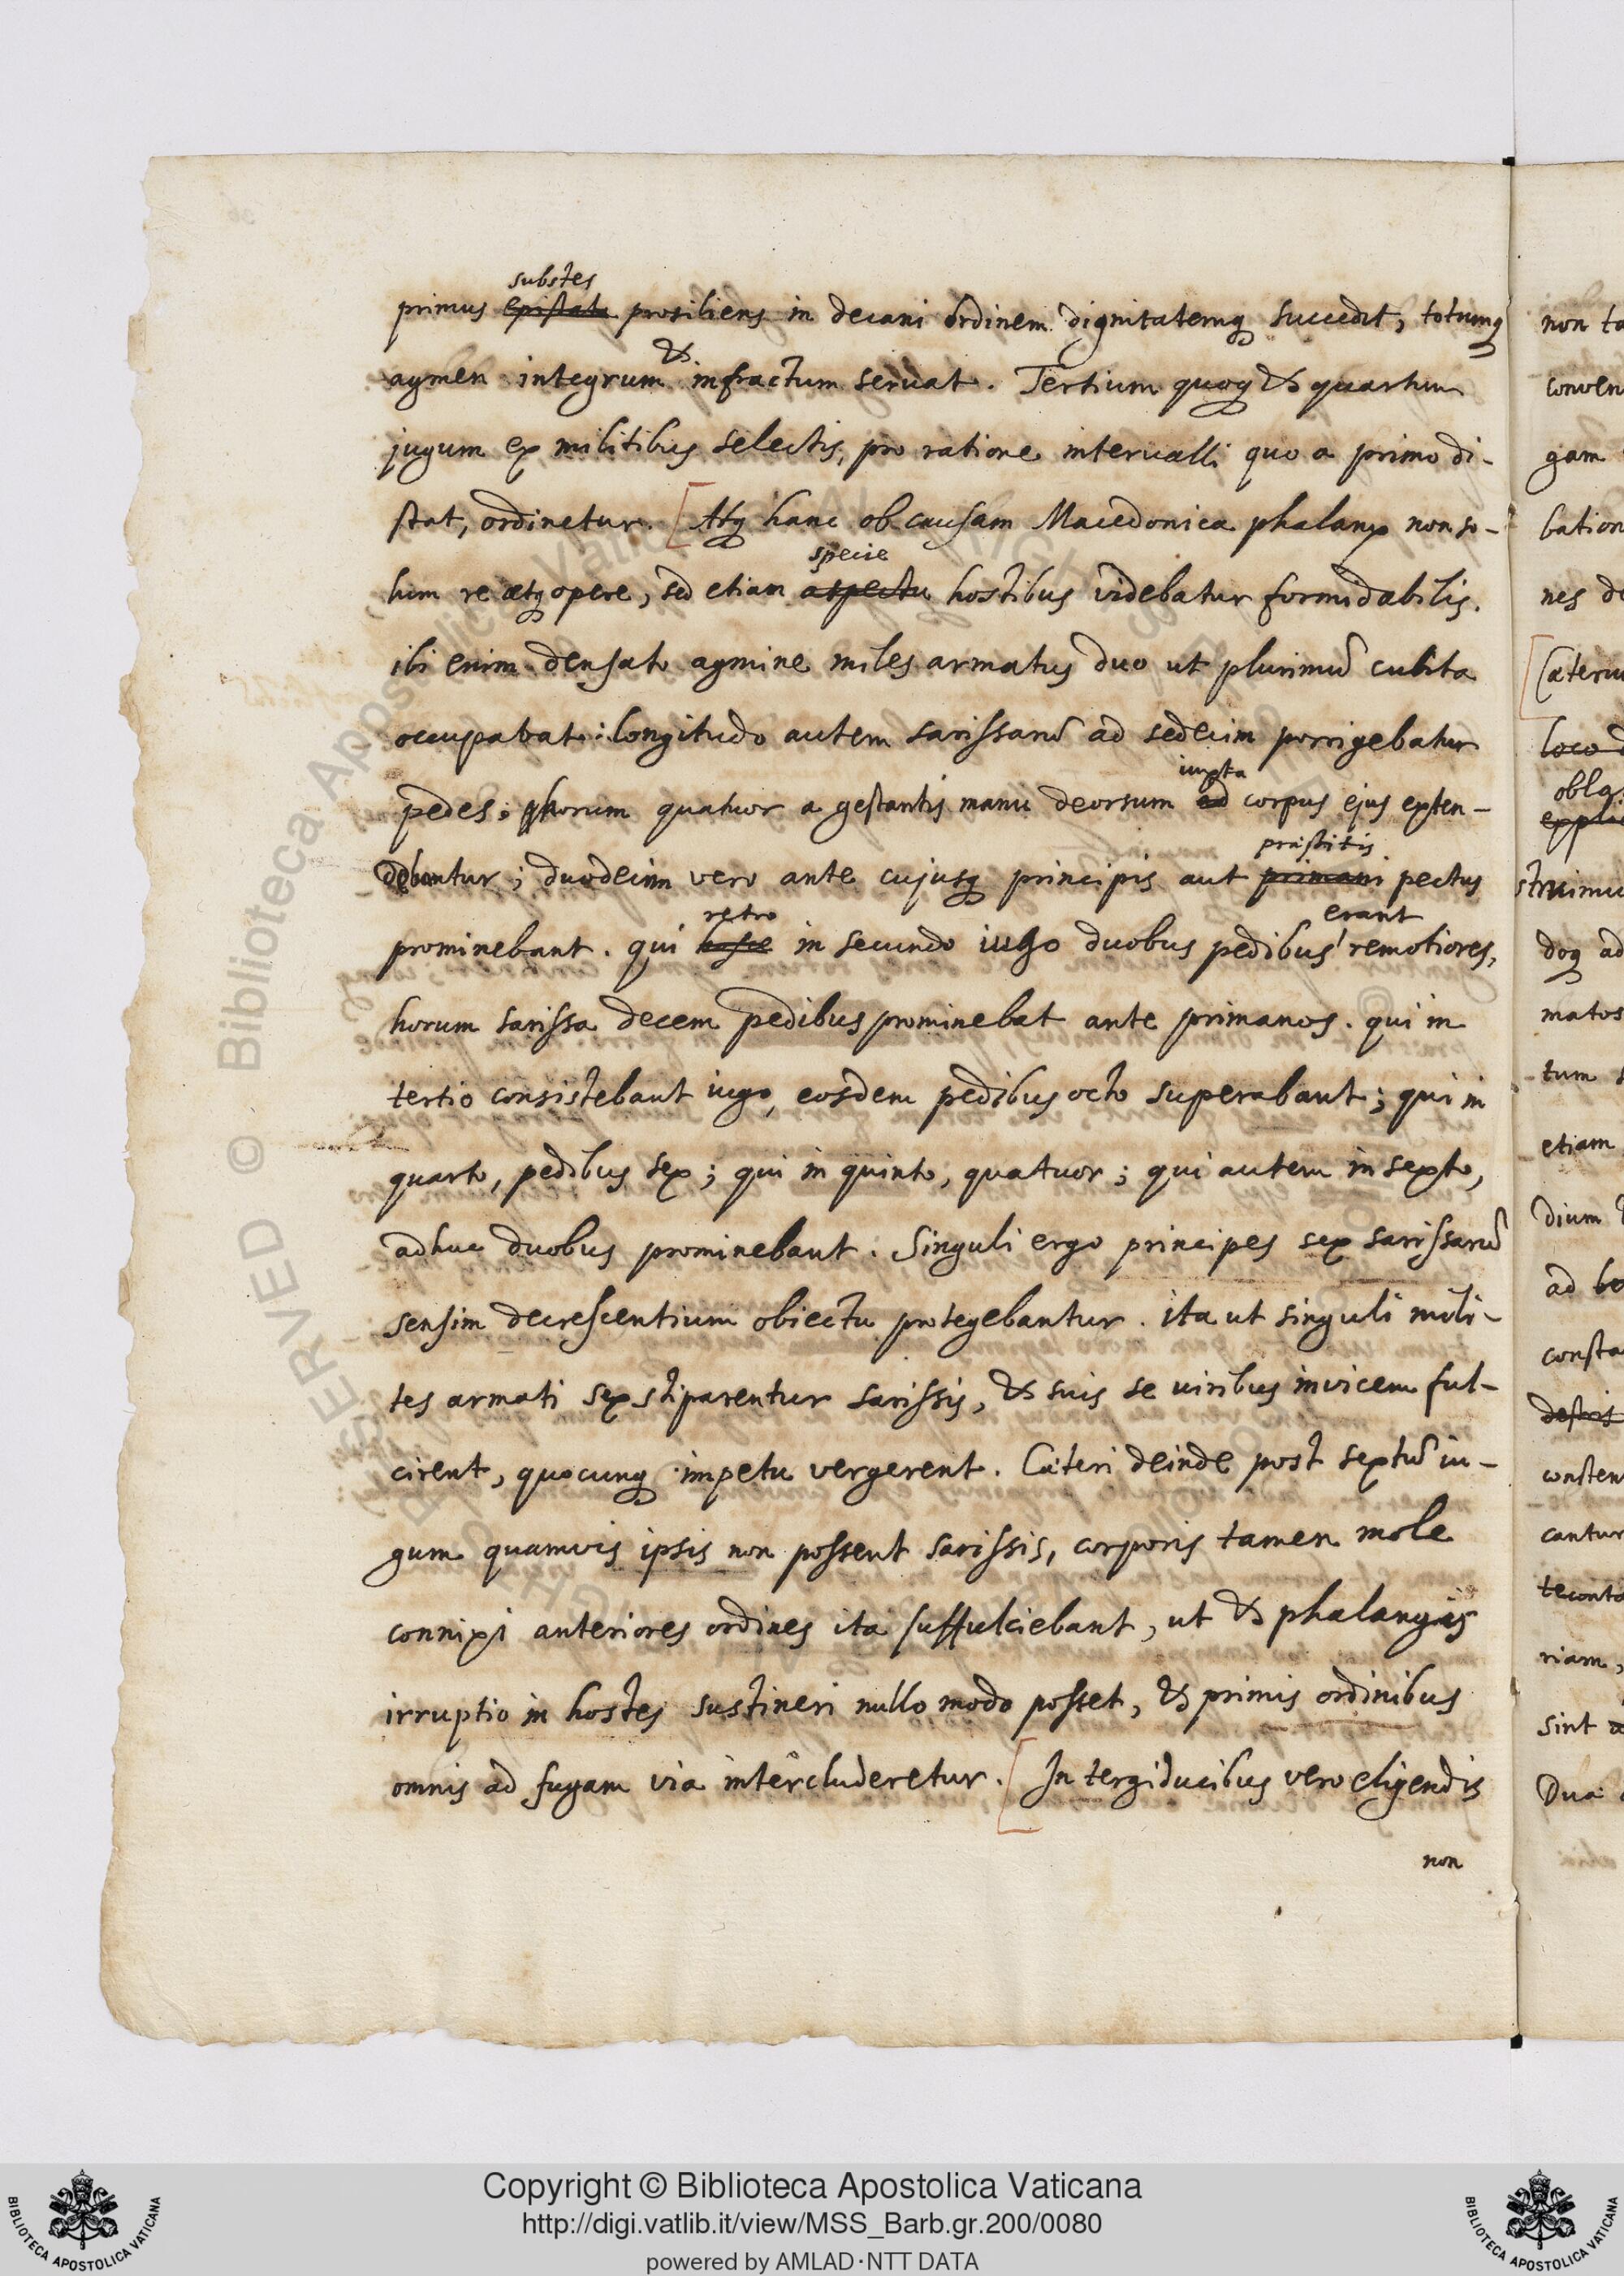 substes
primus epistata prosiliens in decani ordinem dignitatemq succedit, totumq
&
agmen integrum infractum servat. Tertium quoq & quartum
jugum ex militibus selectis, pro ratione intervalli quo a primo di-
stat, ordinetur. [Atq hanc ob causam Macedonica phalanx non so-
specie
lum re atq opere, sed etiam aspectu hostibus videbatur formidabilis.
ibi enim densato agmine miles armatus duo ut plurimū cubita
occupabat: longitudo autem sarissarū ad sedecim porrigebatur
iuxta
pedes; horum quatuor a gestantis manu deorsum ad corpus ejus exten-
præstitis
debantur; duodecim vero ante cujusq principis aut primani pectus
retro erant
prominebant. qui hosce in secundo iugo duobus pedibus remotiores,
horum sarissa decem pedibus prominebat ante primanos. qui in
tertio consistebant iugo, eosdem pedibus octo superabant; qui in
quarto, pedibus sex; qui in quinto, quatuor; qui autem in sexto,
adhuc duobus prominebant. Singuli ergo principes sex sarissarū
sensim decrescentium obiectu protegebantur. ita ut singuli mili-
tes armati sex stiparentur sarissis, & suis se viribus invicem ful-
cirent, quocunq impetu vergerent. Cæteri deinde post sextū iu-
gum quamvis ipsis non possent sarissis, corporis tamen mole
connixi anteriores ordines ita suffulciebant, ut & phalangis
irruptio in hostes sustineri nullo modo posset, & primis ordinibus
omnis ad fugam via intercluderetur. [In tergiducibus vero eligendis
non
non
conven
gam
bation
nes
[Cæteru
loco
struimu
doq ad
matos
tum
etiam
dium
ad
consta
consten
cantur
riam,
sint
Dua
Copyright © Biblioteca Apostolica Vaticana
http://digi.vatlib.it/view/MSS_Barb.gr.200/0080
powered by AMLAD·NTT DATA
BIBLIOTECA APOSTOLICA VATICANA
BIBLIOTECA APOSTOLICA VATICANA